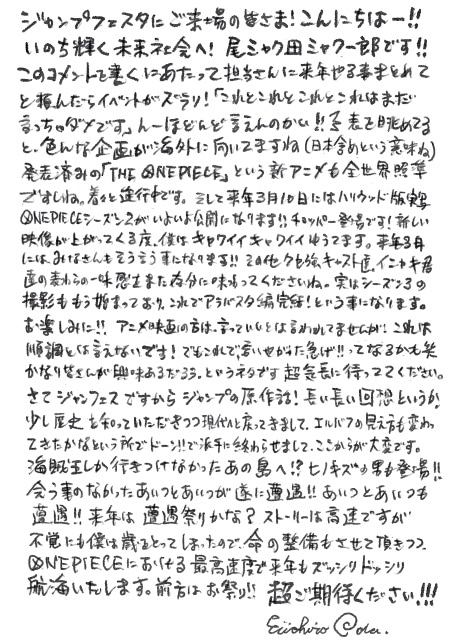 ジャンプフェスタにご来場の皆さま!こんにちはー!!
いのち輝く未来社会へ!尾ミャク田ミャクー郎です!!
このコメントを書くにあたって担当さんに来年やる事まとめて
と頼んだらイベントがズラリ!「これとこれとこれとこれはまだ
言っちゃダメです」んーほとんど言えんのかい!!予表を眺めてる
と、色んな企画が海外に向いてますね(日本含めという意味ね)
発表済みの「THE ONE PIECE」という新アニメも全世界照準
ですしね。着々と進行中です。そして来年3月10日にはハリウッド版実写
ONE PIECEシーズン2がいよいよ公開になります!!チョッパー登場です!新しい
映像が上がってくる度、僕はキャワイイキャワイイゆうてます。来年3月
には、みなさんもそう言う事になります!!その他クセ強キャスト達、イニャキ君
達の麦わらの一味愛をまた存分に味わってくださいね。実はシーズン3の
撮影ももう始まっており、これでアラバスタ編完結!という事になります。
お楽しみに!!アニメ映画の方は、言っていいとは言われてませんが、これは
順調とは言えないです!でもこれで言いやがった急げ!!ってなるかも笑
かなり皆さんが興味あるだろう、というネタです 超気長に待っててください。
さてジャンフェスですからジャンプの原作話!長い長い回想というか
少し歴史を知っていただきつつ現代へと戻ってきまして、エルバフの見え方も変わっ
てきたかなという所でドーン!!で派手に終わらせまして、ここからが大変です。
海賊王しか行きつけなかったあの島へ!?ヒノキズの男も登場!!
会う事のなかったあいつとあいつが遂に遭遇!!あいつとあいつも
遭遇!!来年は遭遇祭りかな?ストーリーは高速ですが
不覚にも僕は歳をとってしまったので、命の整備もさせて頂きつつ
ONE PIECEにおける最高速度で来年もズッシリドッシリ
航海いたします。前方はお祭り!!超ご期待ください!!!
Eiichiro Oda.